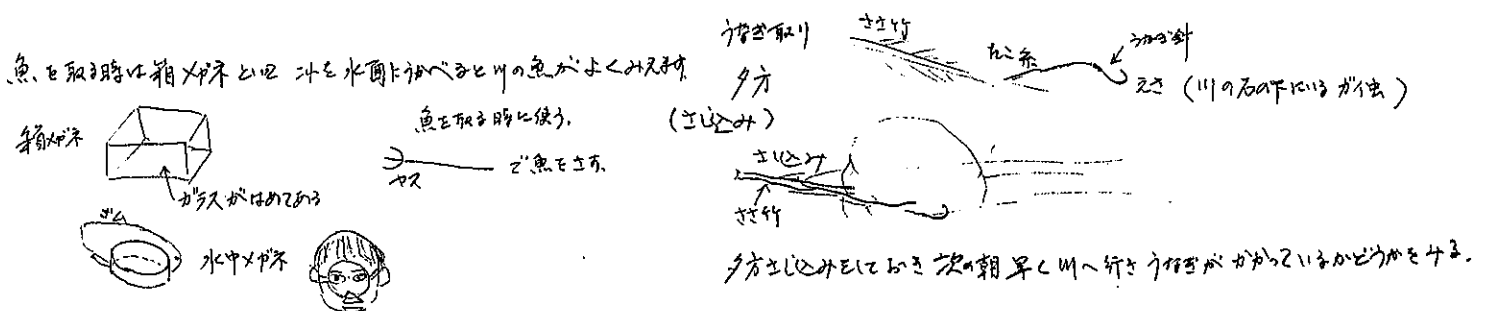 魚を取る時は箱メガネといい これを水面にうかべると川の魚がよくみえます
箱メガネ
ガラスがはめてある
魚を取る時に使う。
ヤス
で魚をさす。
ゴム
水中メガネ
うなぎ取り
ささ竹
たこ糸
うなぎ針
えさ (川の石の下にいるガイ虫)
夕方
(さし込み)
さし込み
ささ竹
夕方さし込みをしておき 次の朝早く川へ行き うなぎがかかっているかどうかをみる。